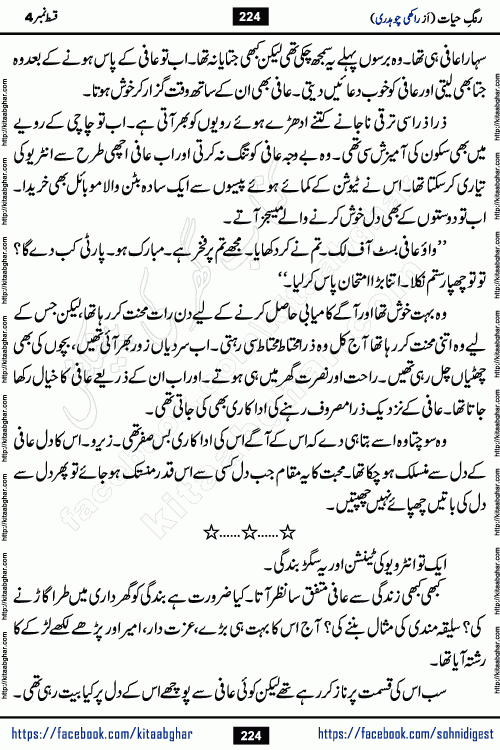 رنگِ حیات (از راکھی چوہدری)
224
قسط نمبر 4
سہارا عافی ہی تھا۔ وہ برسوں پہلے یہ سمجھ چکی تھی لیکن کبھی جتایا نہ تھا۔ اب تو عافی کے پاس ہونے کے بعد وہ
جتا بھی لیتی اور عافی کو خوب دعائیں دیتی۔ عافی بھی ان کے ساتھ وقت گزار کر خوش ہوتا۔
ذرا ذرا سی ترقی نا جانے کتنے ادھڑے ہوئے رویوں کو بھر آتی ہے۔ اب تو چاچی کے رویے
میں بھی سکون کی آمیزش سی تھی۔ وہ بے وجہ عافی کو تنگ نہ کرتی اور اب عافی اچھی طرح سے انٹرویو کی
تیاری کر سکتا تھا۔ اس نے ٹیوشن کے کمائے ہوئے پیسوں سے ایک سادہ بٹن والا موبائل بھی خریدا۔
اب تو دوستوں کے بھی دل خوش کرنے والے میسجز آتے۔
”واؤ عافی بیسٹ آف لک۔ تم نے کر دکھایا۔ مجھے تم پر فخر ہے۔ مبارک ہو۔ پارٹی کب دے گا؟
تو تو چھپا رستم نکلا۔ اتنا بڑا امتحان پاس کر لیا۔“
وہ بہت خوش تھا اور آگے کامیابی حاصل کرنے کے لیے دن رات محنت کر رہا تھا، لیکن جس کے
لیے وہ اتنی محنت کر رہا تھا آج کل وہ ذرا محتاط محتاط سی رہتی۔ اب سردیاں زور بھر آئی تھیں، بچوں کی بھی
چھٹیاں چل رہی تھیں۔ راحت اور نصرت گھر میں ہی ہوتے۔ اور اب ان کے ذریعے عافی کا خیال رکھا
جاتا تھا۔ عافی کے نزدیک ذرا مصروف رہنے کی اداکاری بھی کی جاتی تھی۔
وہ سوچتا وہ اسے بتا ہی دے کہ اس کے آگے اس کی اداکاری بس صفر تھی۔ زیرو۔ اس کا دل عافی
کے دل سے منسلک ہو چکا تھا۔ محبت کا یہ مقام جب دل کسی سے اس قدر منسلک ہو جائے تو پھر دل سے
دل کی باتیں چھپائے نہیں چھپتیں۔
☆......☆......☆
ایک تو انٹرویو کی ٹینشن اور یہ سگھڑ بندگی۔
کبھی کبھی زندگی سے عافی متفق سا نظر آتا۔ کیا ضرورت ہے بندگی کو گھر داری میں طرا گاڑنے
کی؟ سلیقہ مندی کی مثال بننے کی؟ آج اس کا بہت ہی بڑے، عزت دار، امیر اور پڑھے لکھے لڑکے کا
رشتہ آیا تھا۔
سب اس کی قسمت پر ناز کر رہے تھے لیکن کوئی عافی سے پوچھے اس کے دل پر کیا بیت رہی تھی۔
https://facebook.com/kitaabghar
224
https://facebook.com/sohnidigest